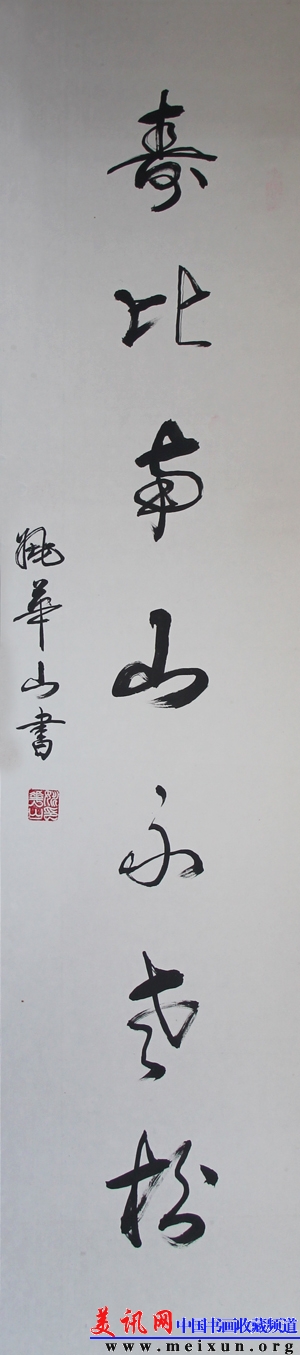 寿比南山不老松
姚華山書
美讯网 中国书画收藏频道
www.meixun.org